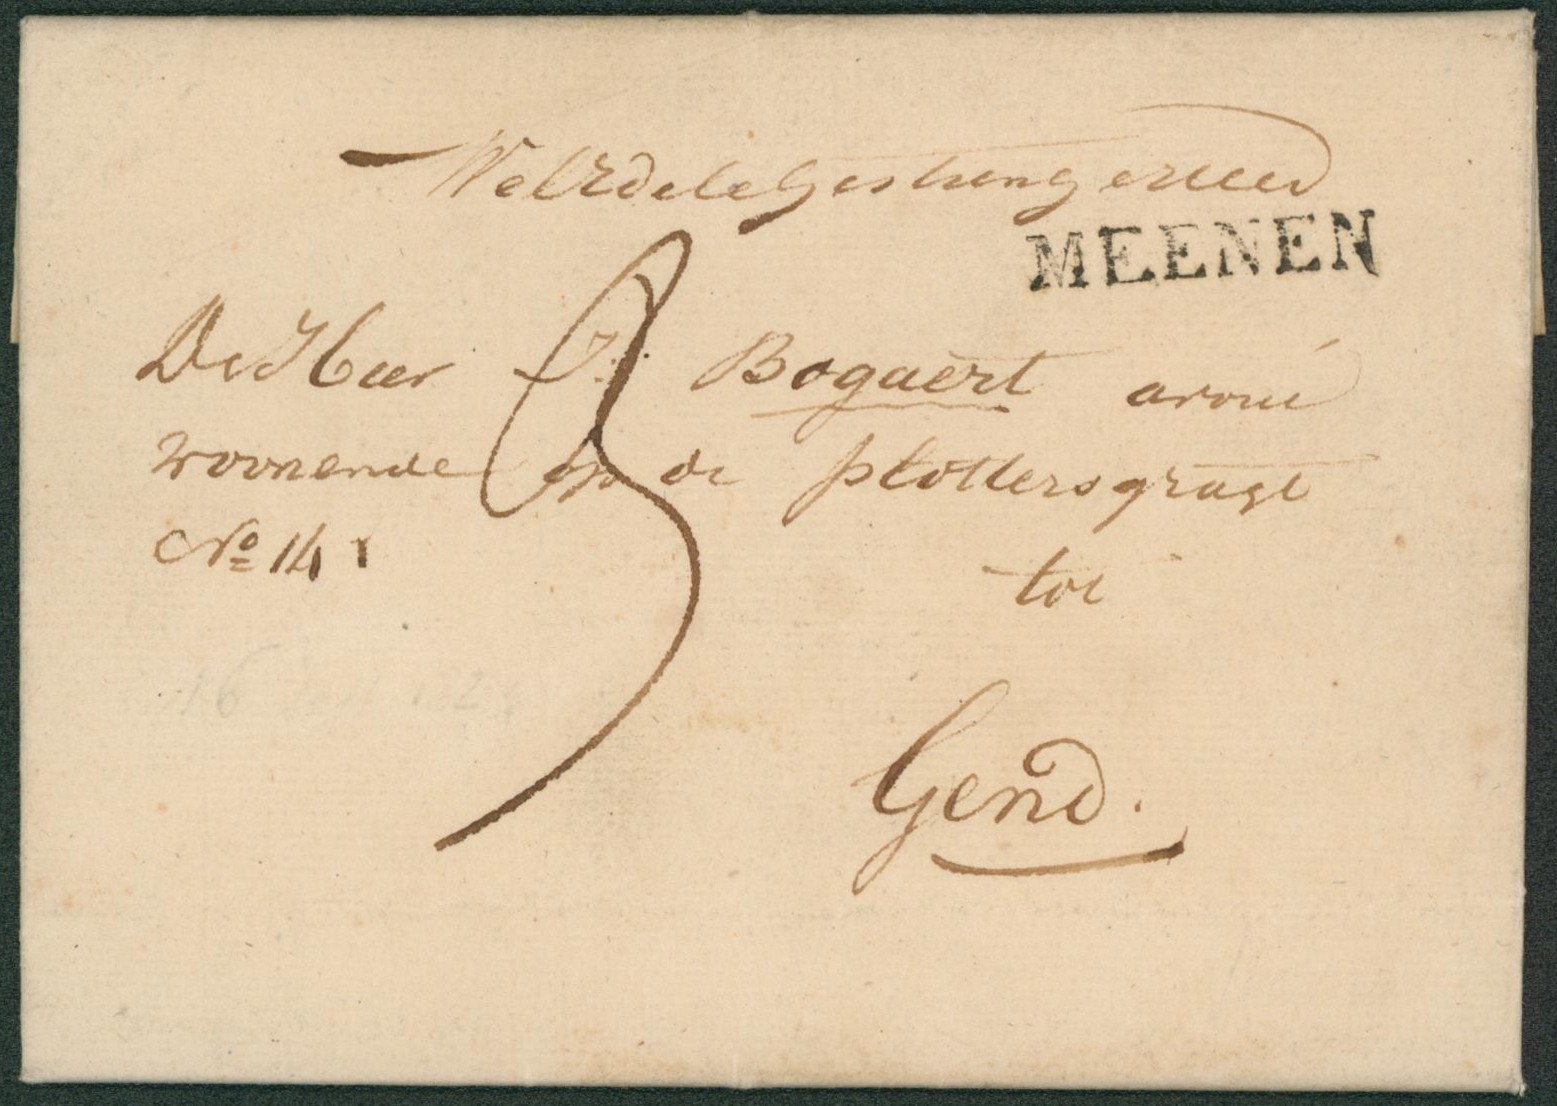 WelEdele Gestreng
MEENEN
De Heer J: Bogaert avoué
woonende op de plottersgragt
No 141
tot
Gend.
3